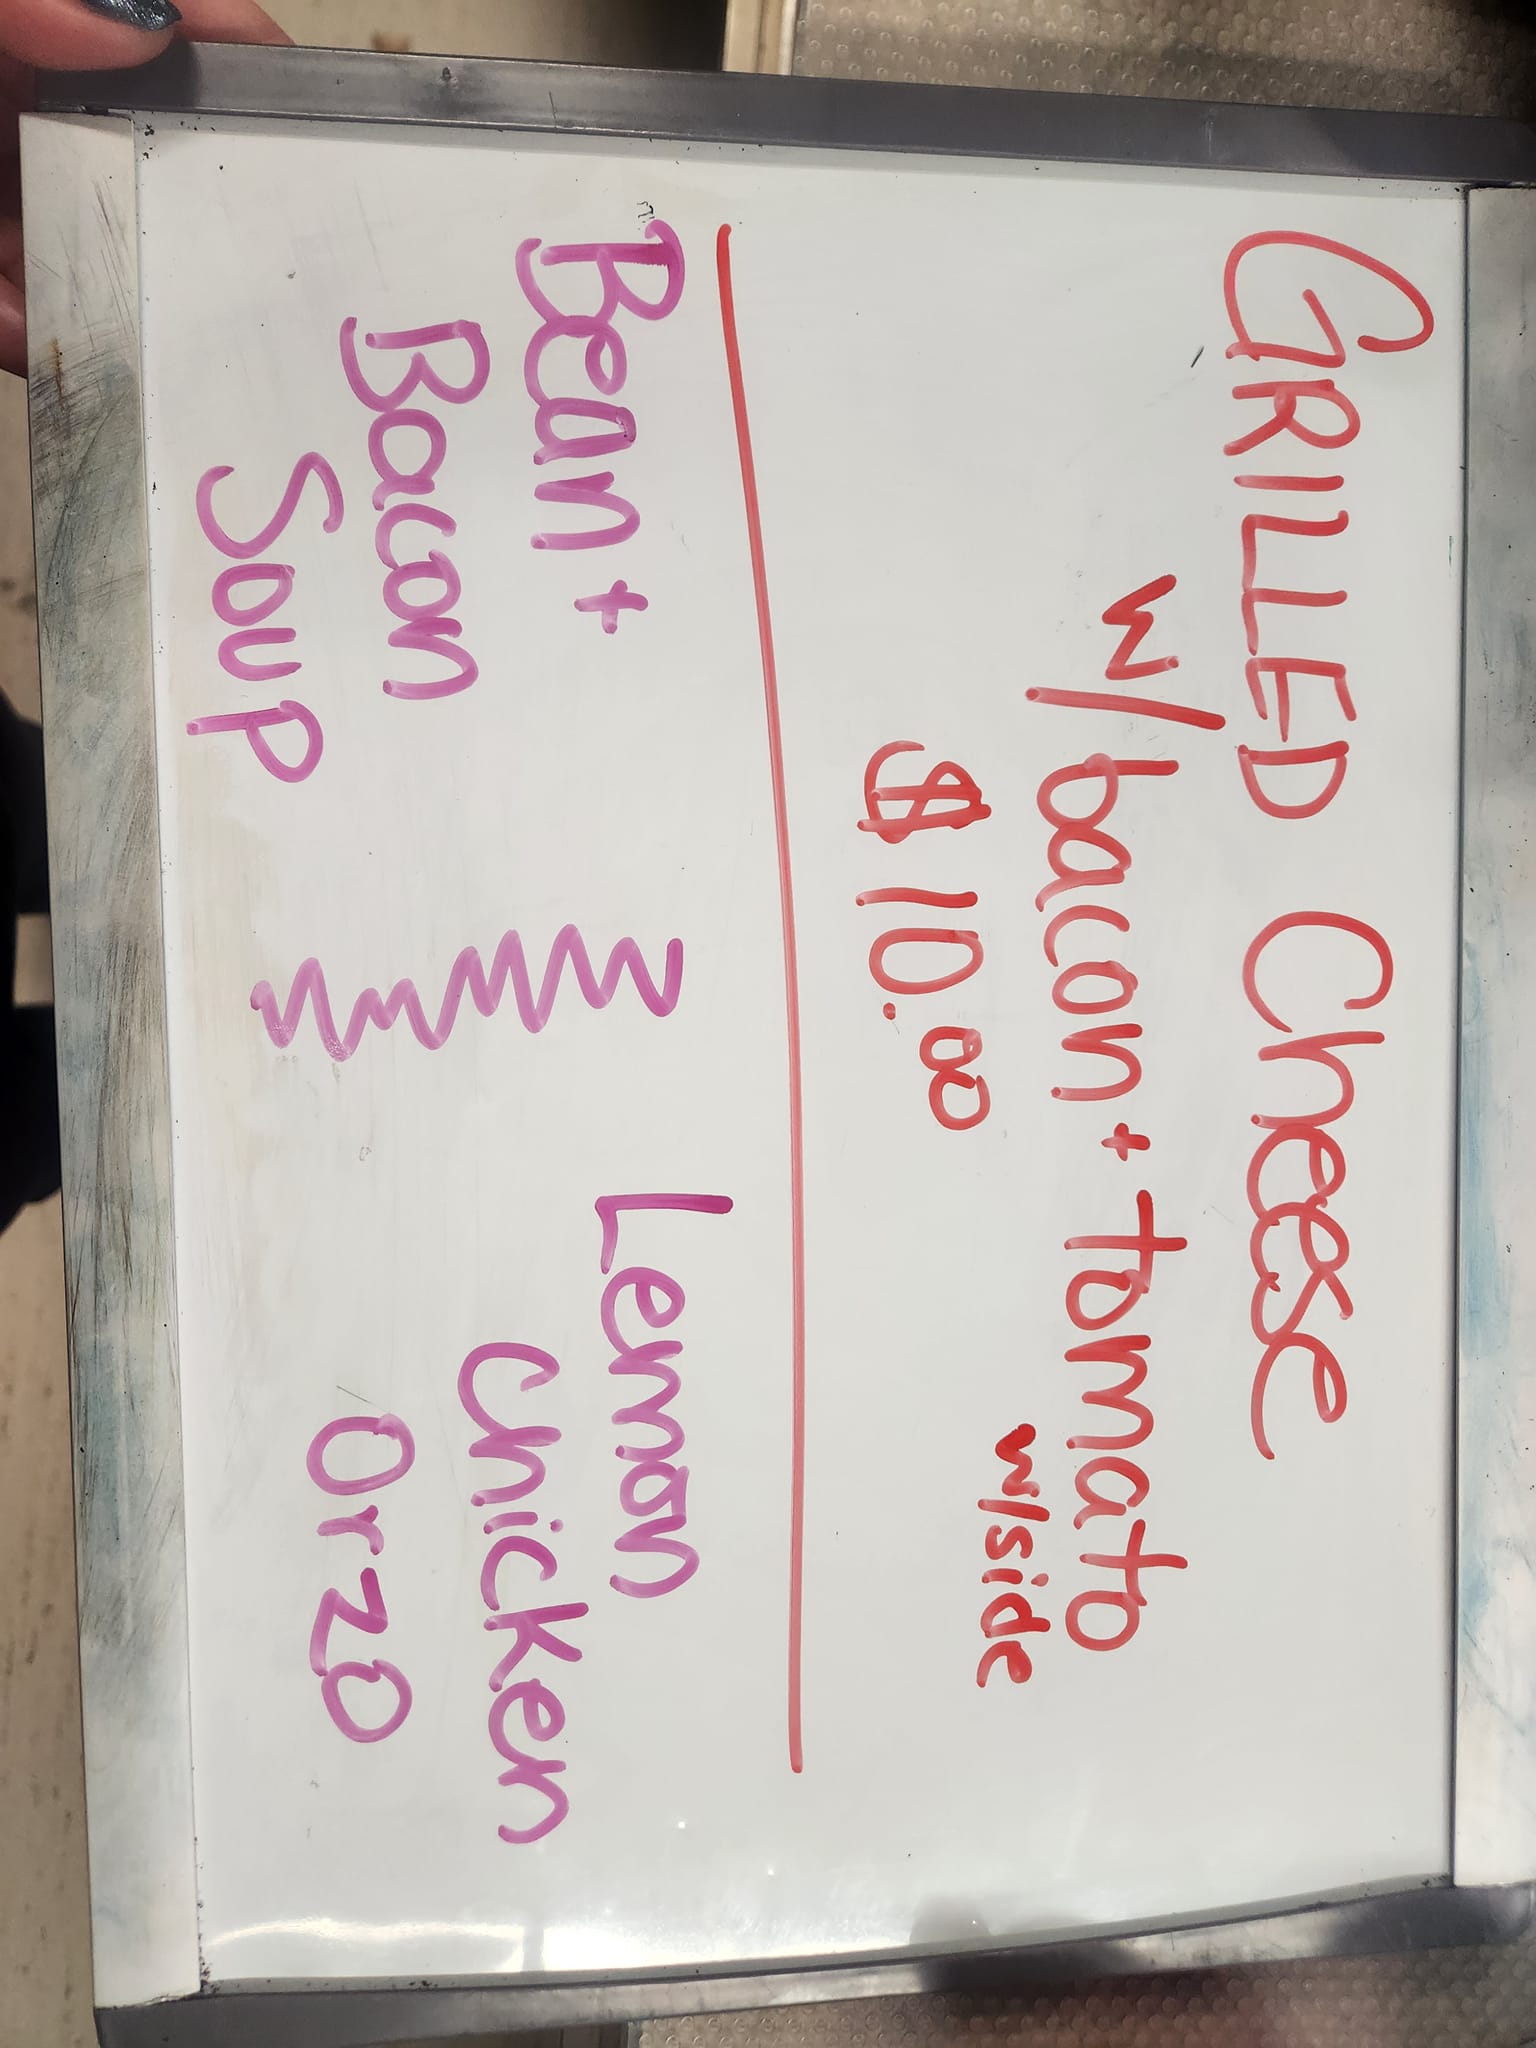 GRILLED Cheese
w/ bacon + tomato
w/side
$10.00
Bean +
Bacon
Soup
Lemon
Chicken
Orzo